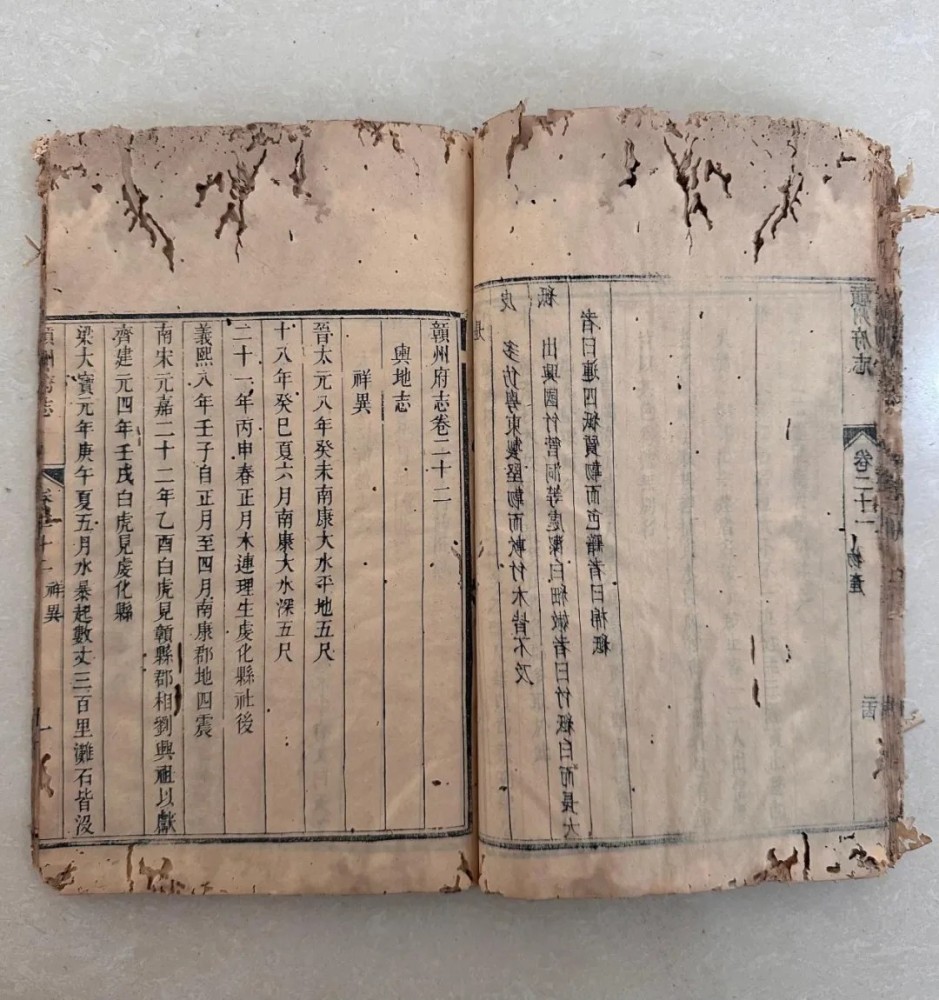 皮　多仿粵東製堅韌而軟竹木皆不及
紙　出興國竹管洞等處潔白細嫩者曰竹紙白而長大
者曰連四紙質韌而色黯者曰棉紙
贛州府志　卷二十一　物產
贛州府志卷二十二
輿地志
祥異
晉太元八年癸未南康大水平地五尺
十八年癸巳夏六月南康大水深五尺
二十一年丙申春正月木連理生虔化縣社後
義熙八年壬子自正月至四月南康郡地四震
南宋元嘉二十二年乙酉白虎見贛縣郡相劉興祖以獻
齊建元四年壬戌白虎見虔化縣
梁大寶元年庚午夏五月水暴起數丈三百里灘石皆沒
贛州府志　卷二十二　祥異　一